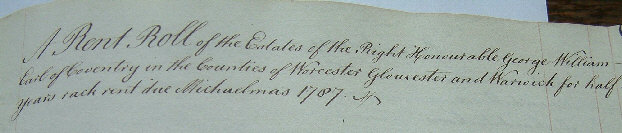 A Rent Roll of the Estates of the Right Honourable George William
Earl of Coventry in the Counties of Worcester Gloucester and Warwick for half
years rack rent due Michaelmas 1787.